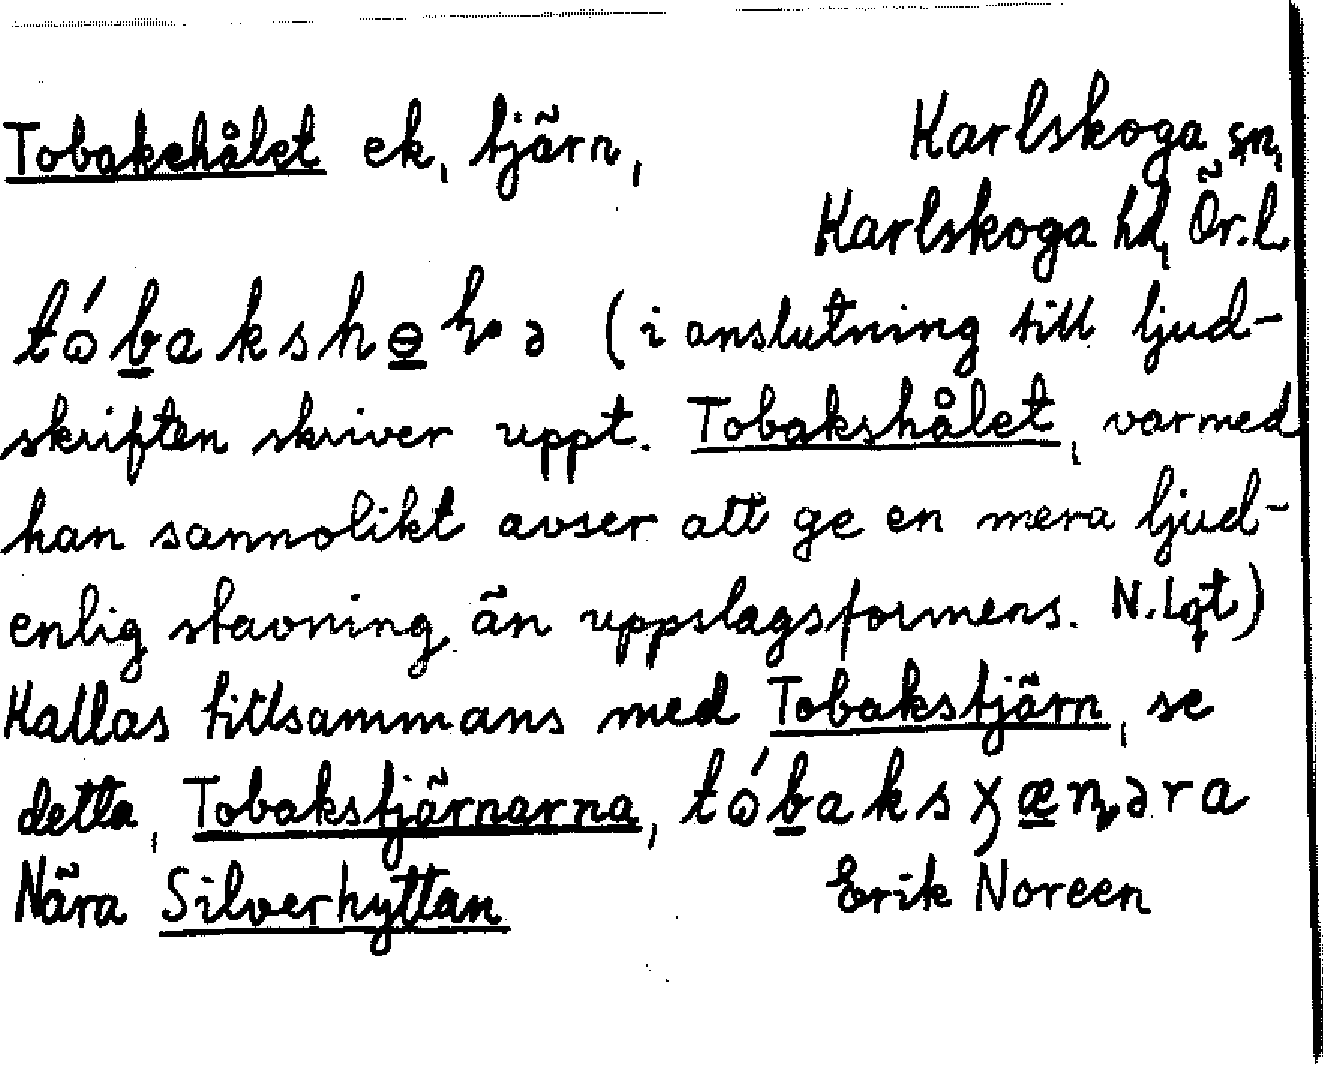 Tobakehålet ek, tjärn, Karlskoga sn,
Karlskoga hd, Ör.l.
(i anslutning till ljud-
skriften skriver uppt. Tobakshålet, varmed
han sannolikt avser att ge en mera ljud-
enlig stavning än uppslagsformens. N.Lqt)
Kallas tillsammans med Tobakstjärn, se
detta, Tobakstjärnarna,
Nära Silverhyttan Erik Noreen